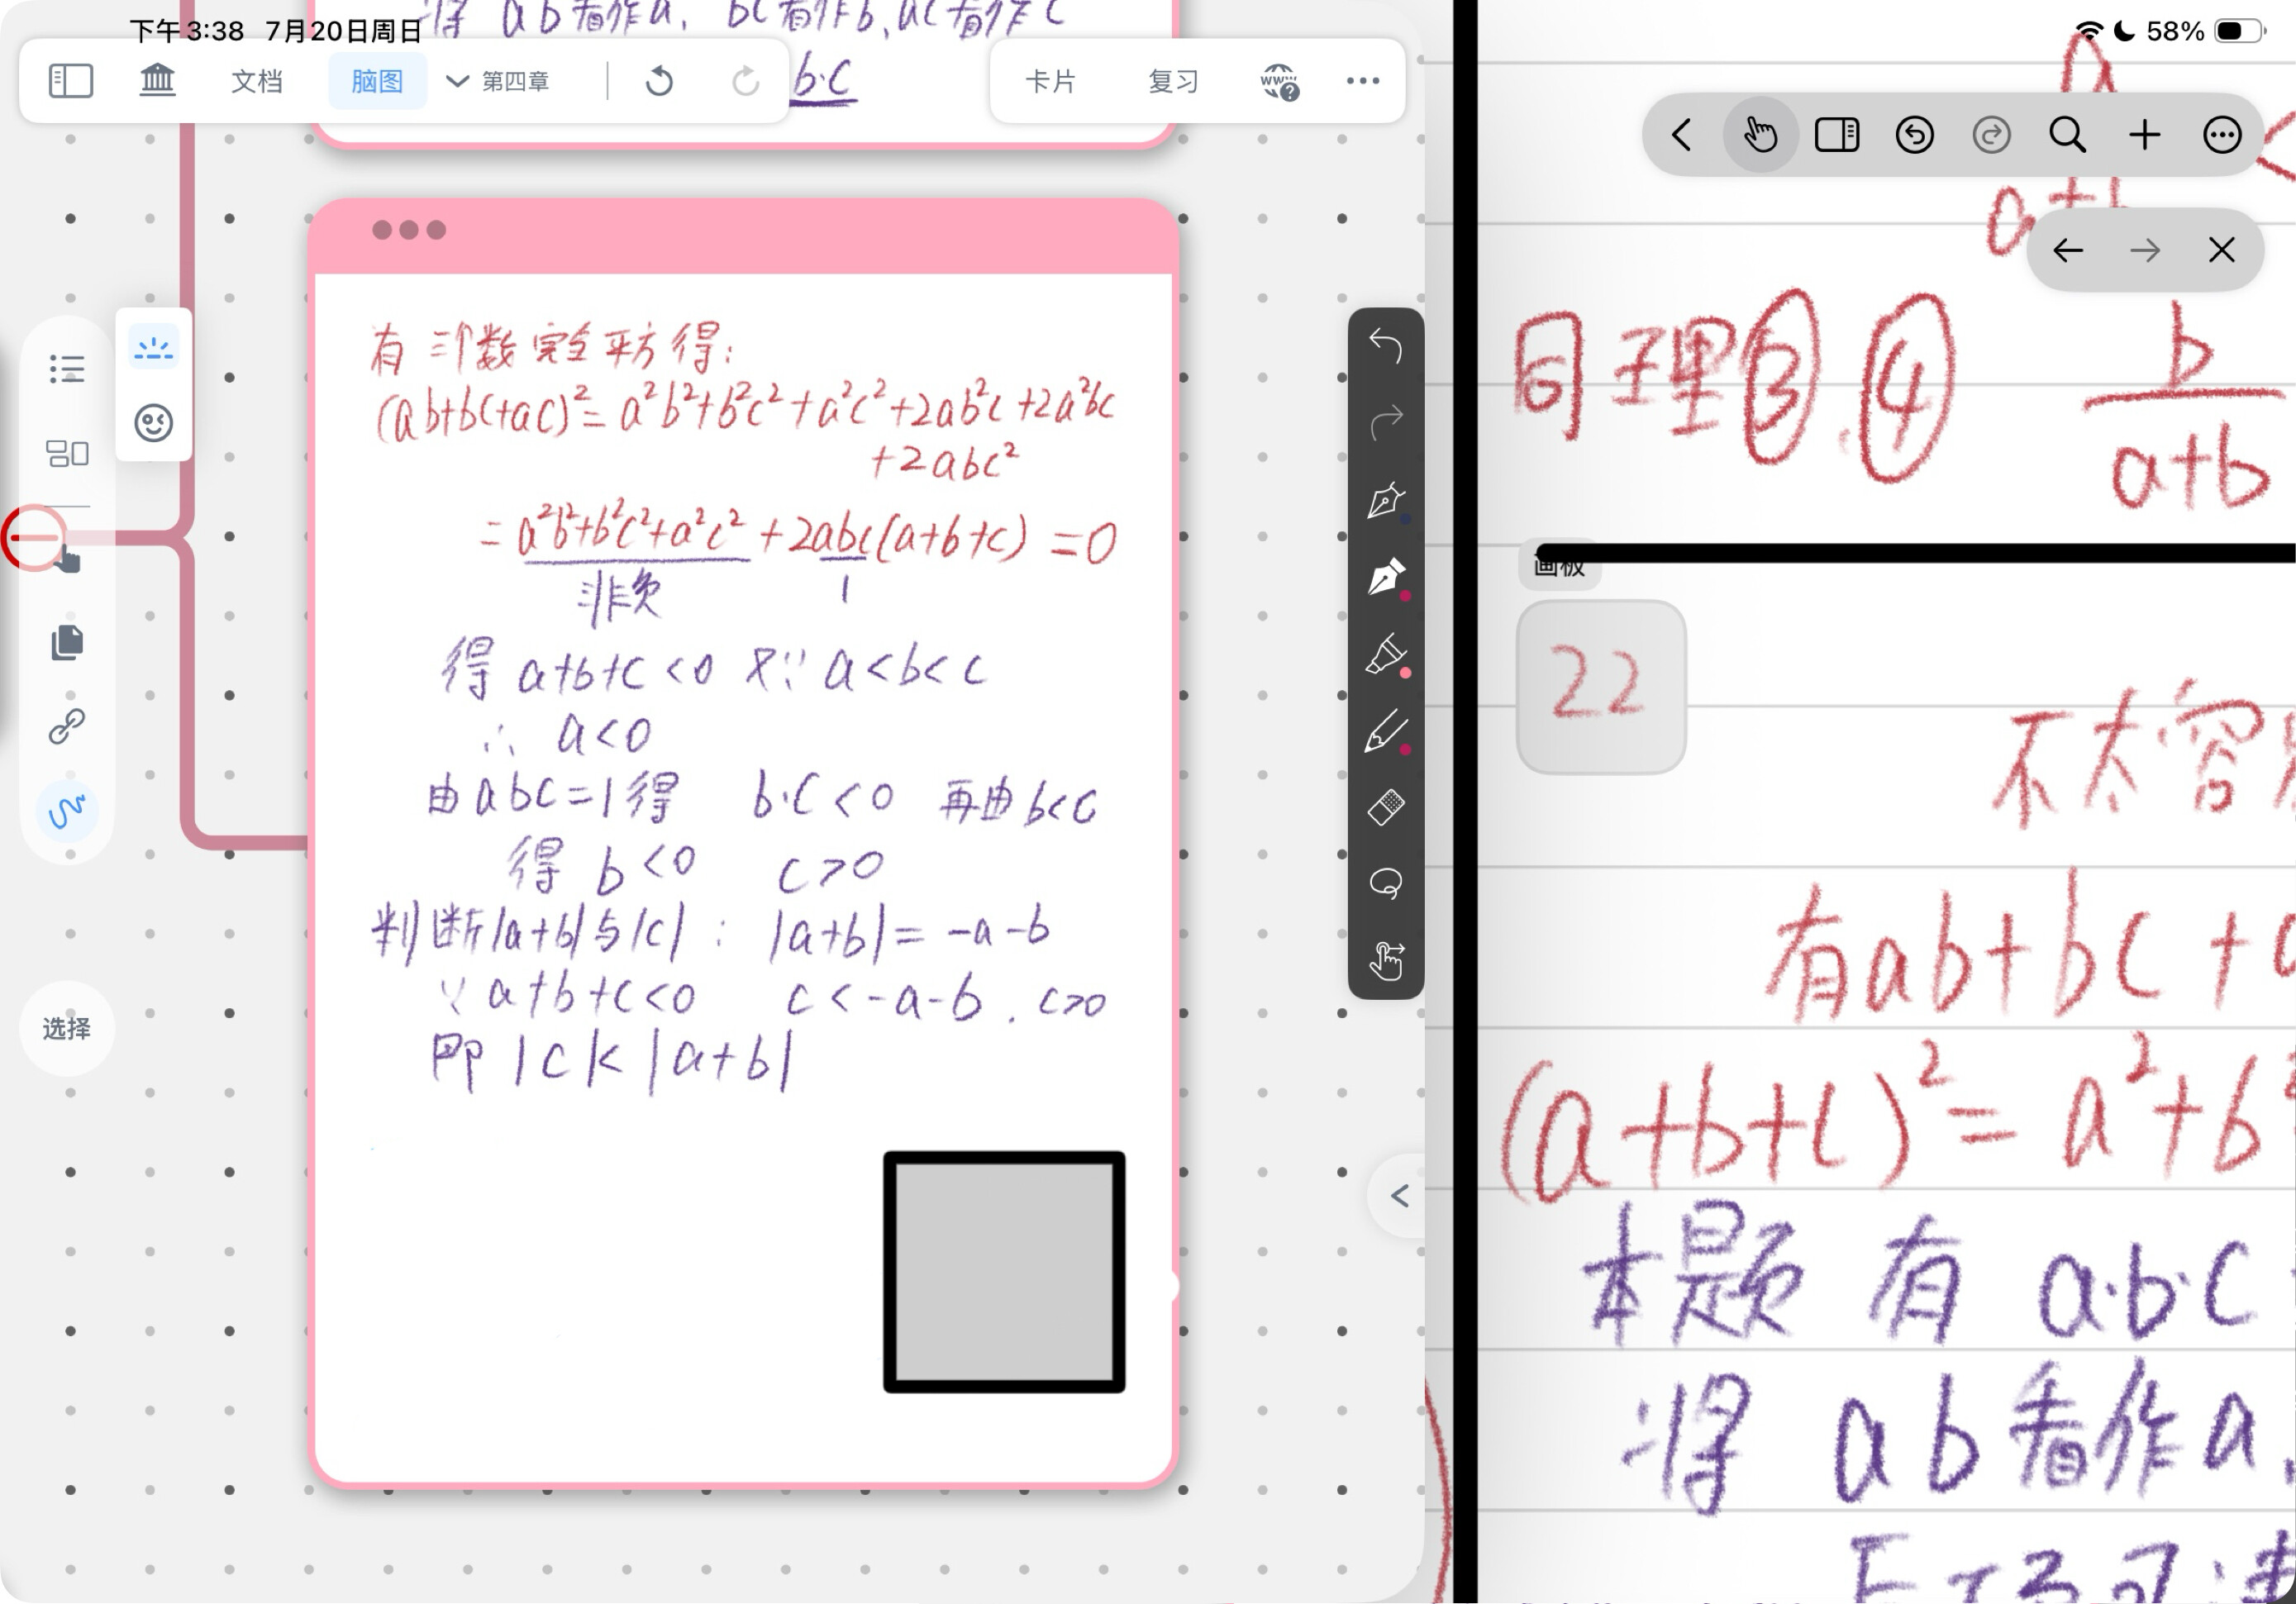 将 ab看作a, bc看作b, ac看作c
下午3:38 7月20日周日
58%
文档
脑图
第四章
b·c
卡片
复习
www
有三个数完全平方得:
(ab+bc+ac)²= a²b²+b²c²+a²c²+2ab²c+2a²bc
+2abc²
= a²b²+b²c²+a²c²+2abc(a+b+c)=0
非负
1
得 a+b+c<0 又∵ a<b<c
∴ a<0
由abc=1得 b·c<0 再由b<c
得 b<0 c>0
判断|a+b|与|c| : |a+b|= -a-b
∵ a+b+c<0 c<-a-b . c>0
即 |c|<|a+b|
选择
a
a+b
同理③.④ b
a+b
画板
22
不太容
有ab+bc+
(a+b+c)²= a²+b²
本题 有 a·b·c
将 ab看作a,